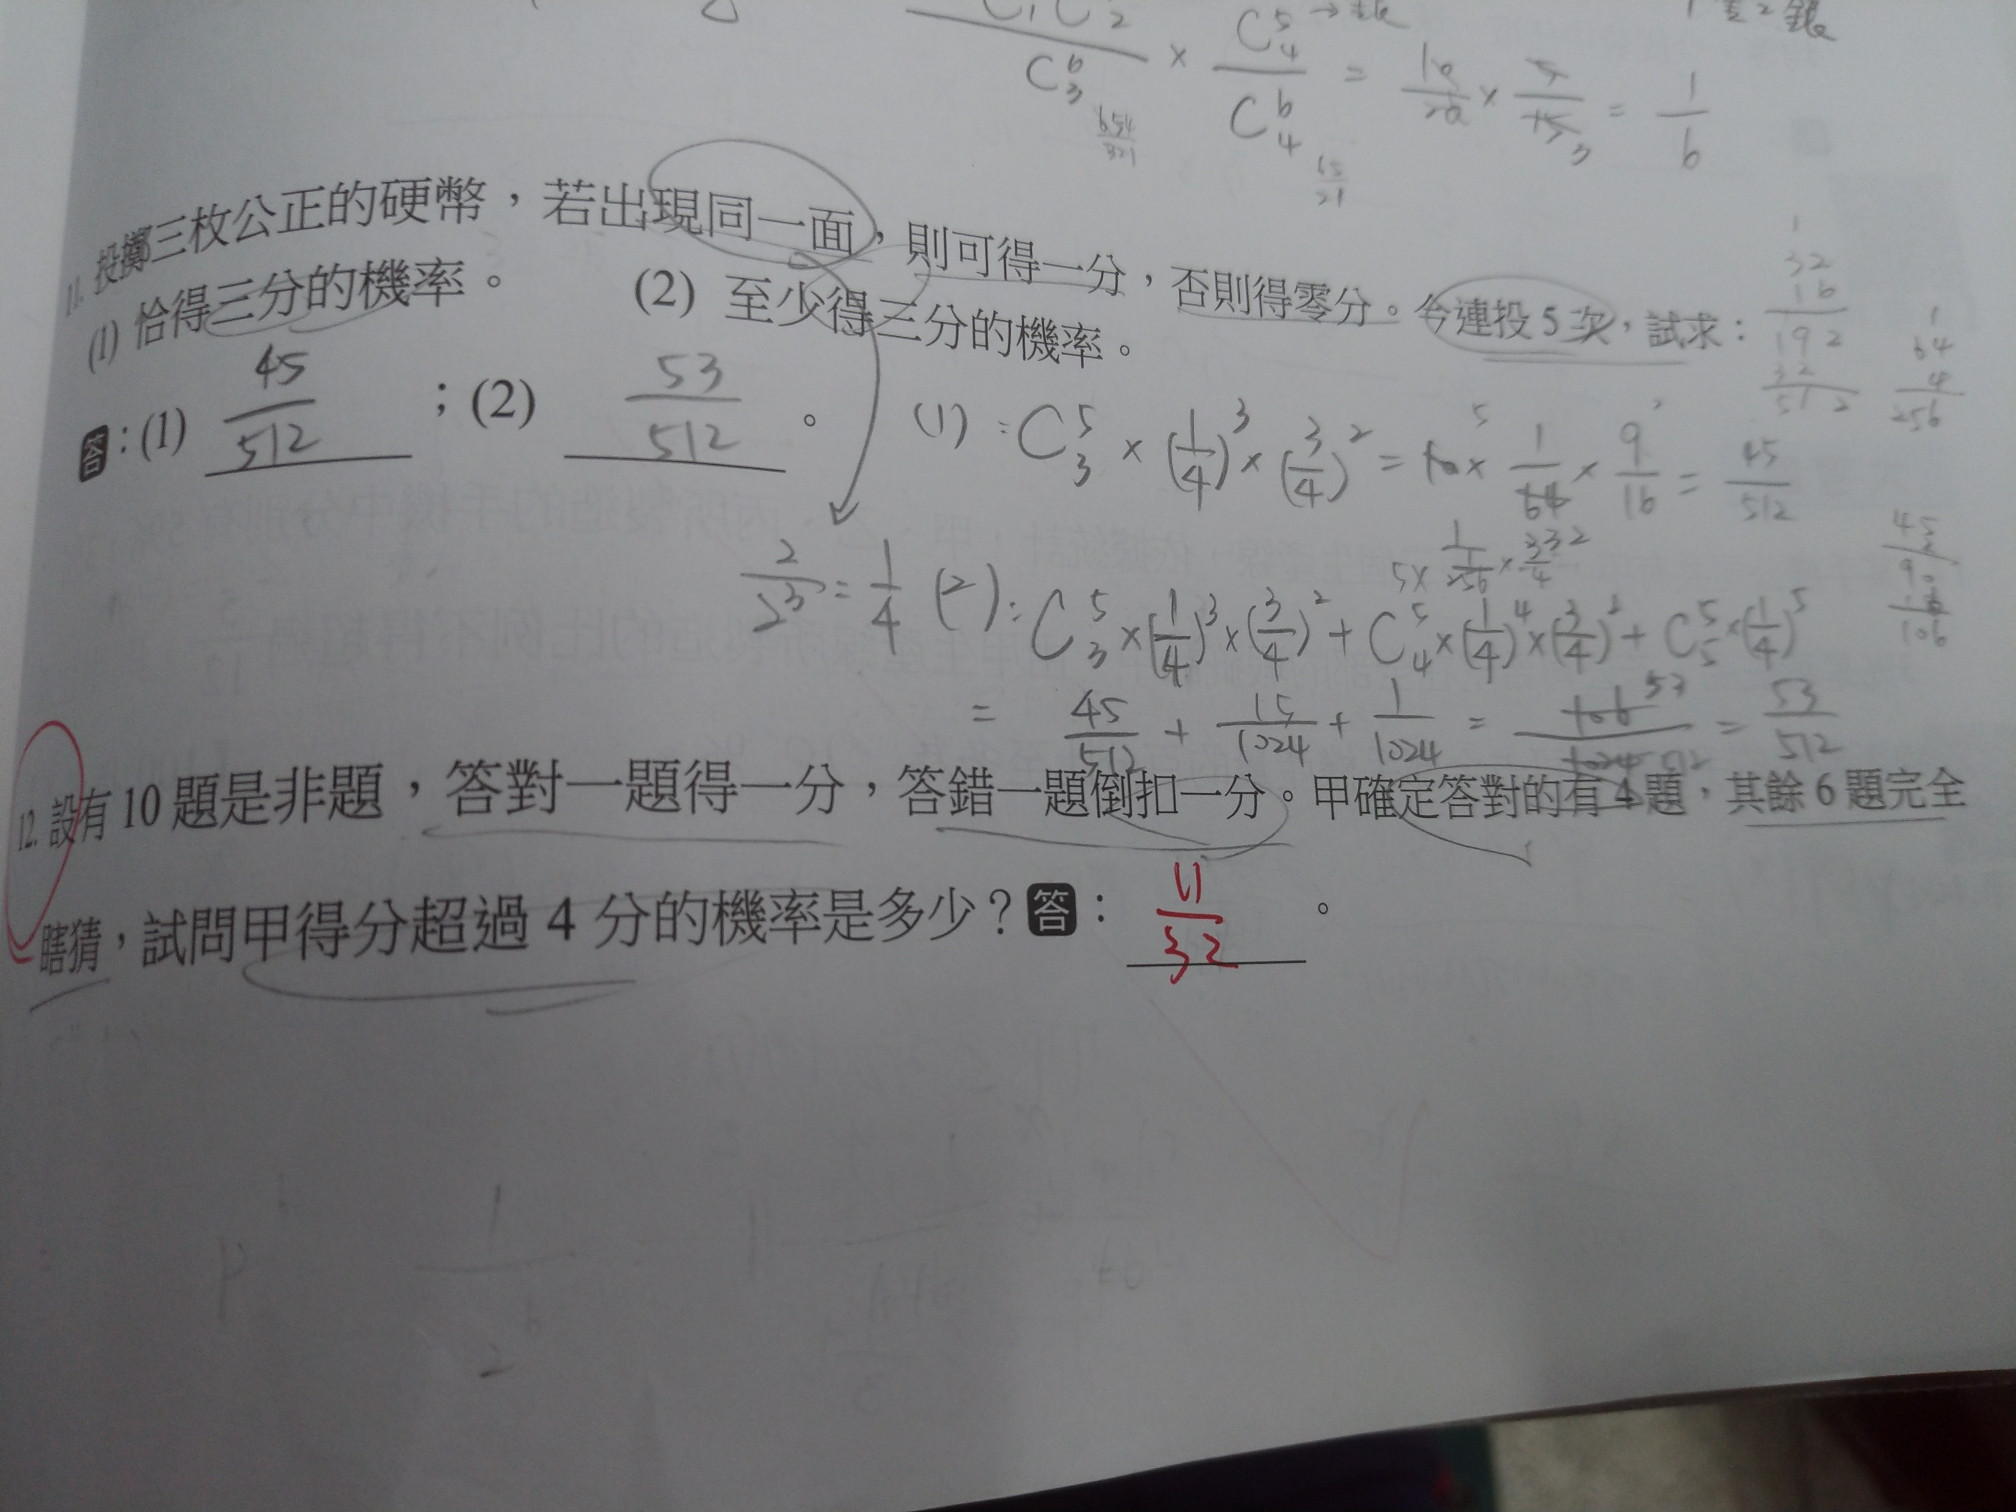 C₃⁶ × C₄⁵/C₄⁶ = 10/20 × 5/15 3 = 1/6
654/321
11. 投擲三枚公正的硬幣，若出現同一面，則可得一分，否則得零分。今連投 5 次，試求：
(1) 恰得三分的機率。 (2) 至少得三分的機率。
答：(1) 45/512 ；(2) 53/512 。
(1) : C₃⁵ × (1/4)³ × (3/4)² = 10 5 × 1/64 × 9/16 = 45/512
2/2³ = 1/4
5 × 1/256 ×
(2) : C₃⁵ × (1/4)³ × (3/4)² + C₄⁵ × (1/4)⁴ × (3/4) + C₅⁵ × (1/4)⁵
= 45/512 + 15/1024 + 1/1024 = 106 53/1024 512 = 53/512
32
16
192
32
512
1
64
4
256
45
2
90
16
106
12. 設有 10 題是非題，答對一題得一分，答錯一題倒扣一分。甲確定答對的有 4 題，其餘 6 題完全
瞎猜，試問甲得分超過 4 分的機率是多少？答： 11/32 。